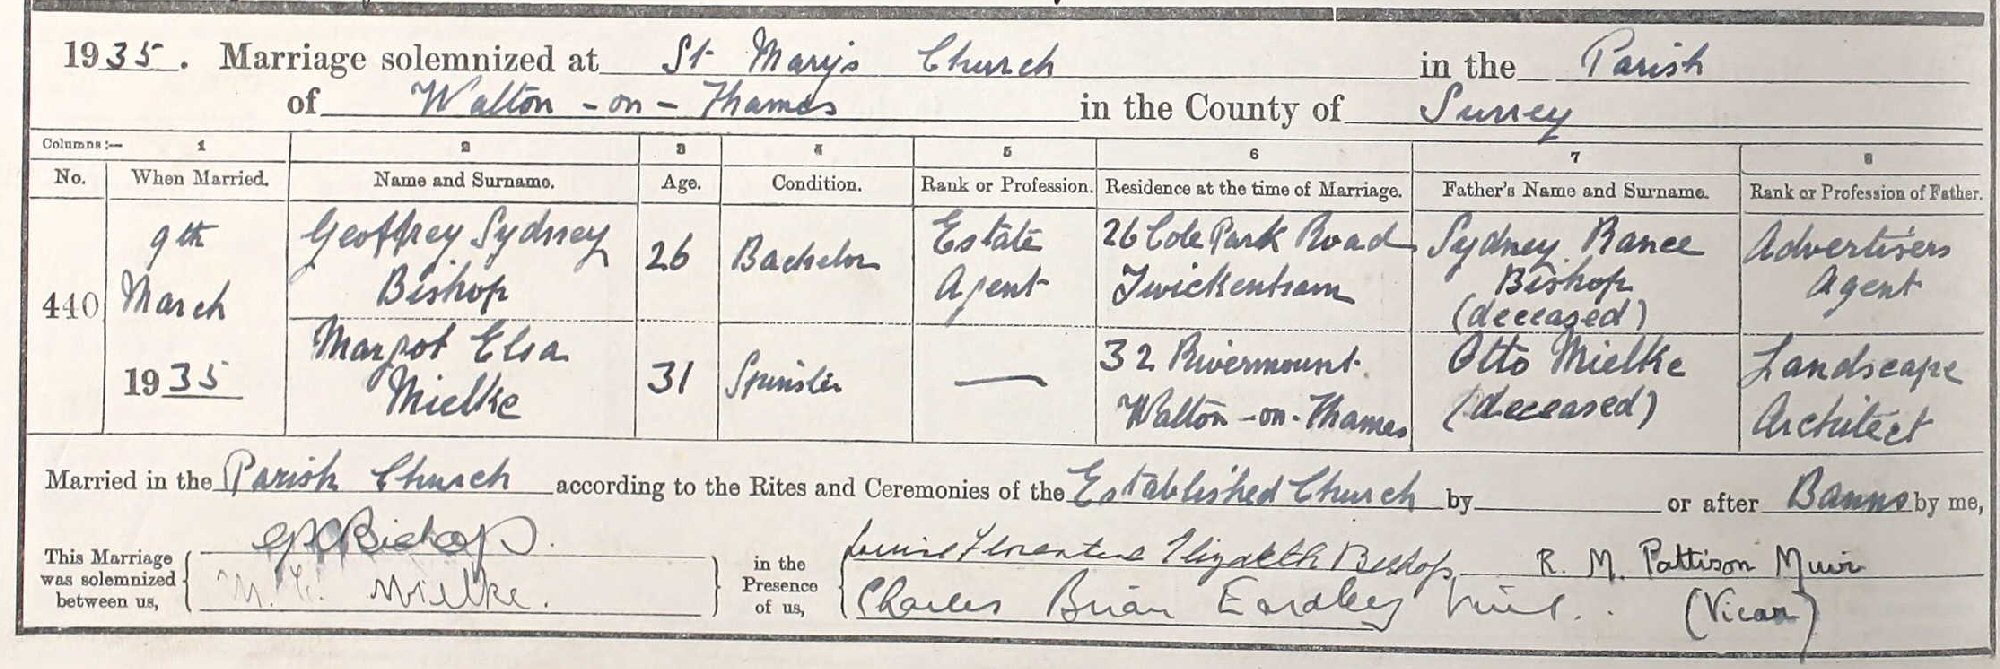 1935. Marriage solemnized at St Mary's Church in the Parish
of Walton-on-Thames in the County of Surrey
Columns:— 1 2 3 4 5 6 7 8
No. When Married. Name and Surname. Age. Condition. Rank or Profession. Residence at the time of Marriage. Father's Name and Surname. Rank or Profession of Father.
440
9th
March
1935
Geoffrey Sydney
Bishop
26
Bachelor
Estate
Agent
26 Cole Park Road
Twickenham
Sydney Rance
Bishop
(deceased)
Advertisers
Agent
Margot Elsa
Mielke
31
Spinster
—
32 Rivermount
Walton-on-Thames
Otto Mielke
(deceased)
Landscape
Architect
Married in the Parish Church according to the Rites and Ceremonies of the Established Church by or after Banns by me,
This Marriage
was solemnized
between us,
G S Bishop.
M. E. Mielke.
in the
Presence
of us,
Florentine Elizabeth Bishop
Charles Brian Eardley
R. M. Pattison Muir
(Vicar)